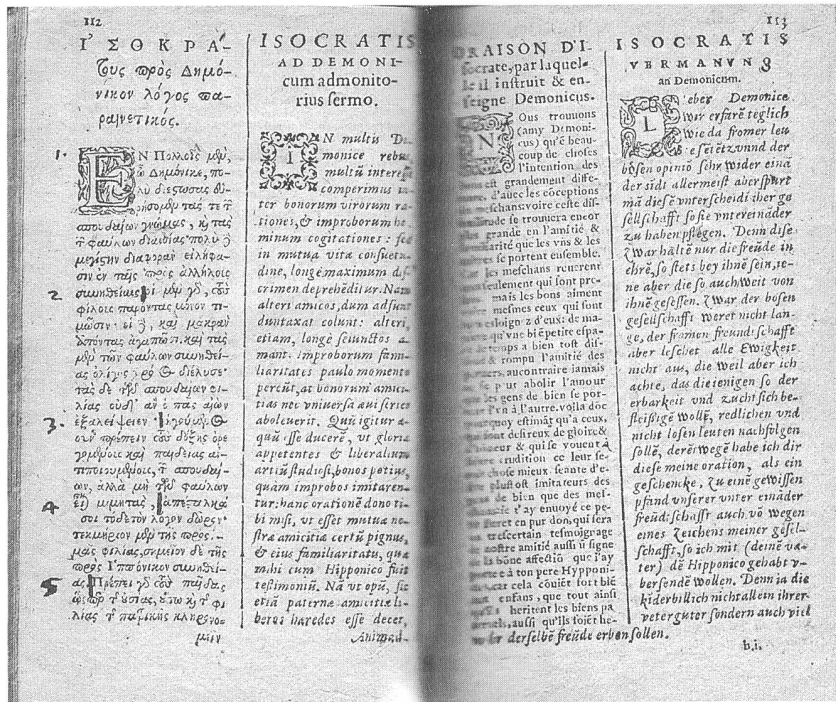 112
ΙΣΟΚΡΑ-
τους πρὸς Δημό-
νικον λόγος πα-
ραινετικός.
1.
ΕΝ Πολλοῖς μὲν,
ὦ Δημόνικε, πο-
λὺ
τὰς τε τ
σπουδαίων γνώμας, κὴ τὰς
τ φαύλων διανοίας· πολὺ
μεγίστην διαφορὰν εἰλήφα-
σιν ἐν ταῖς πρὸς ἀλλήλους
2
συνηθείαις οἱ μὲν γὸ, τοὺς
φίλοις παρόντας μόνον τι-
μῶσιν· οἱ καὶ μακρὰν
ἀπόντας ἀγαπῶσι. καὶ τὰς
μὲν τῶν φαύλων συνηθεί-
ας ὀλίγος διέλυσε·
τὰς δὲ σπουδαίων φι-
λίας οὐδ' ἂν ὁ πᾶς αἰὼν
3.
ἐξαλείψειεν
οὖν πρέπειν δόξης ὀρε
καὶ παιδείας
σπουδαί-
ων, ἀλλὰ μὴ φαύλων
4
μιμητὰς,
σοι τόνδε τὸν λόγον δῶρον·
τεκμήριον μὲν τῆς πρὸς
μᾶς φιλίας, σημεῖον δὲ τῆς
πρὸς Ἱππόνικον συνηθεί-
5
ας Πρέπει γὸ παῖδας
ὥσπερ οὐσίας, οὕτω κὴ τ φι
λίας τ πατρικῆς κληρονο-
μεῖν
ISOCRATIS
AD DEMONI-
cum admonito-
rius sermo.
IN multis De
monice rebus
multũ interesse
comperimus in-
ter bonorum virorum ra-
tiones, & improborum ho
minum cogitationes: sed
in mutua vita consuetu-
dine, longè maximum dis
crimen deprehẽditur. Nam
alteri amicos, dum adsunt
duntaxat colunt: alteri,
etiam, longè seiunctos a-
mant. Improborum fami-
liaritates paulo momento
percũt, at bonorum amici-
tias nec vniuersa æui series
aboleuerit. Quũ igitur æ-
quũ esse ducerẽ, vt gloriæ
appetentes & liberaliũ
artiũ studiosi, bonos potius,
quàm improbos imitaren-
tur: hanc orationẽ dono ti-
bi misi, vt esset mutuæ no-
stræ amicitiæ certũ pignus,
& eius familiaritatis, quæ
mihi cum Hipponico fuit
testimoniũ. Nã vt opũ, sic
etiã paternæ amicitiæ li-
beros hæredes esse decet,
Animad-
113
ORAISON D'I-
socrate, par laquel-
le il instruit & en-
seigne Demonicus.
NOus trouuons
(amy Demoni-
cus) qu'ẽ beau-
coup de choses
l'intention des
bons est grandement diffe-
rente d'auec les cõceptions
des meschans: voire ceste dis-
similitude se trouuera encor
plus grande en l'amitié &
familiarité que les vns & les
autres se portent ensemble.
Car les meschans reuerent
seulement qui sont pre-
mais les bons aiment
mesmes ceux qui sont
esloignez d'eux: de ma-
qu'vne biẽ petite espa-
ce de temps a bien tost dis-
& rompu l'amitié des
peruers, aucontraire iamais
ne peut abolir l'amour
que les gens de bien se por-
tent l'vn à l'autre. voila dõc
pourquoy estimãt qu'à ceux,
qui sont desireux de gloire &
d'honneur & qui se vouent à
erudition ce leur se-
ra chose mieux seante d'e-
stre plustost imitateurs des
gens de bien que des mes-
chans ie t'ay enuoyé ce pe-
tit liuret en pur don, qui sera
trescertain tesmoignage
de nostre amitié aussi ũ signe
de la bõne affectiõ que i'ay
portee à ton pere Hipponi-
cela cõuiẽt tort biẽ
enfans, que tout ainsi
heritent les biens pa-
ternels, aussi qu'ils soiẽt he-
ISOCRATIS
VERMANVNG
an Demonicum.
Lieber Demonice
wir erfarẽ teglich
wie da fromer leu
vnnd der
bösen opiniõ sehr wider einã
der sidt allermeist aber spurt
mã diese vnterscheidt iher ge
sellschafft so sie vntereinãder
zu haben pflegen. Denn dise
zwar haltẽ nur die freũde in
ehrẽ, so stets bey ihnẽ sein, ie-
ne aber die so auch weit von
ihnẽ gesessen. Zwar der bosen
gesellschafft weret nicht lan-
ge, der fromen freundtschafft
aber leschet alle Ewigkeit
nicht aus, die weil aber ich
achte, das die ienigen so der
erbarkeit vnd zucht sich be-
fleissigẽ wollẽ, redlichen vnd
nicht losen leuten nachfolgen
sollẽ, derẽtwegẽ habe ich dir
diese meine oration, als ein
geschencke, zu einẽ gewissen
pfand vnserer vnter einãder
freũdtschafft auch võ wegen
eines zeichens meiner gesel-
schafft, so ich mit (deinẽ va-
ter) dẽ Hipponico gehabt v-
bersende wollen. Denn ia die
kĩder billich nicht allein ihrer
veter guter sondern auch viel
mehr derselbẽ freũde erben sollen.
b.i.